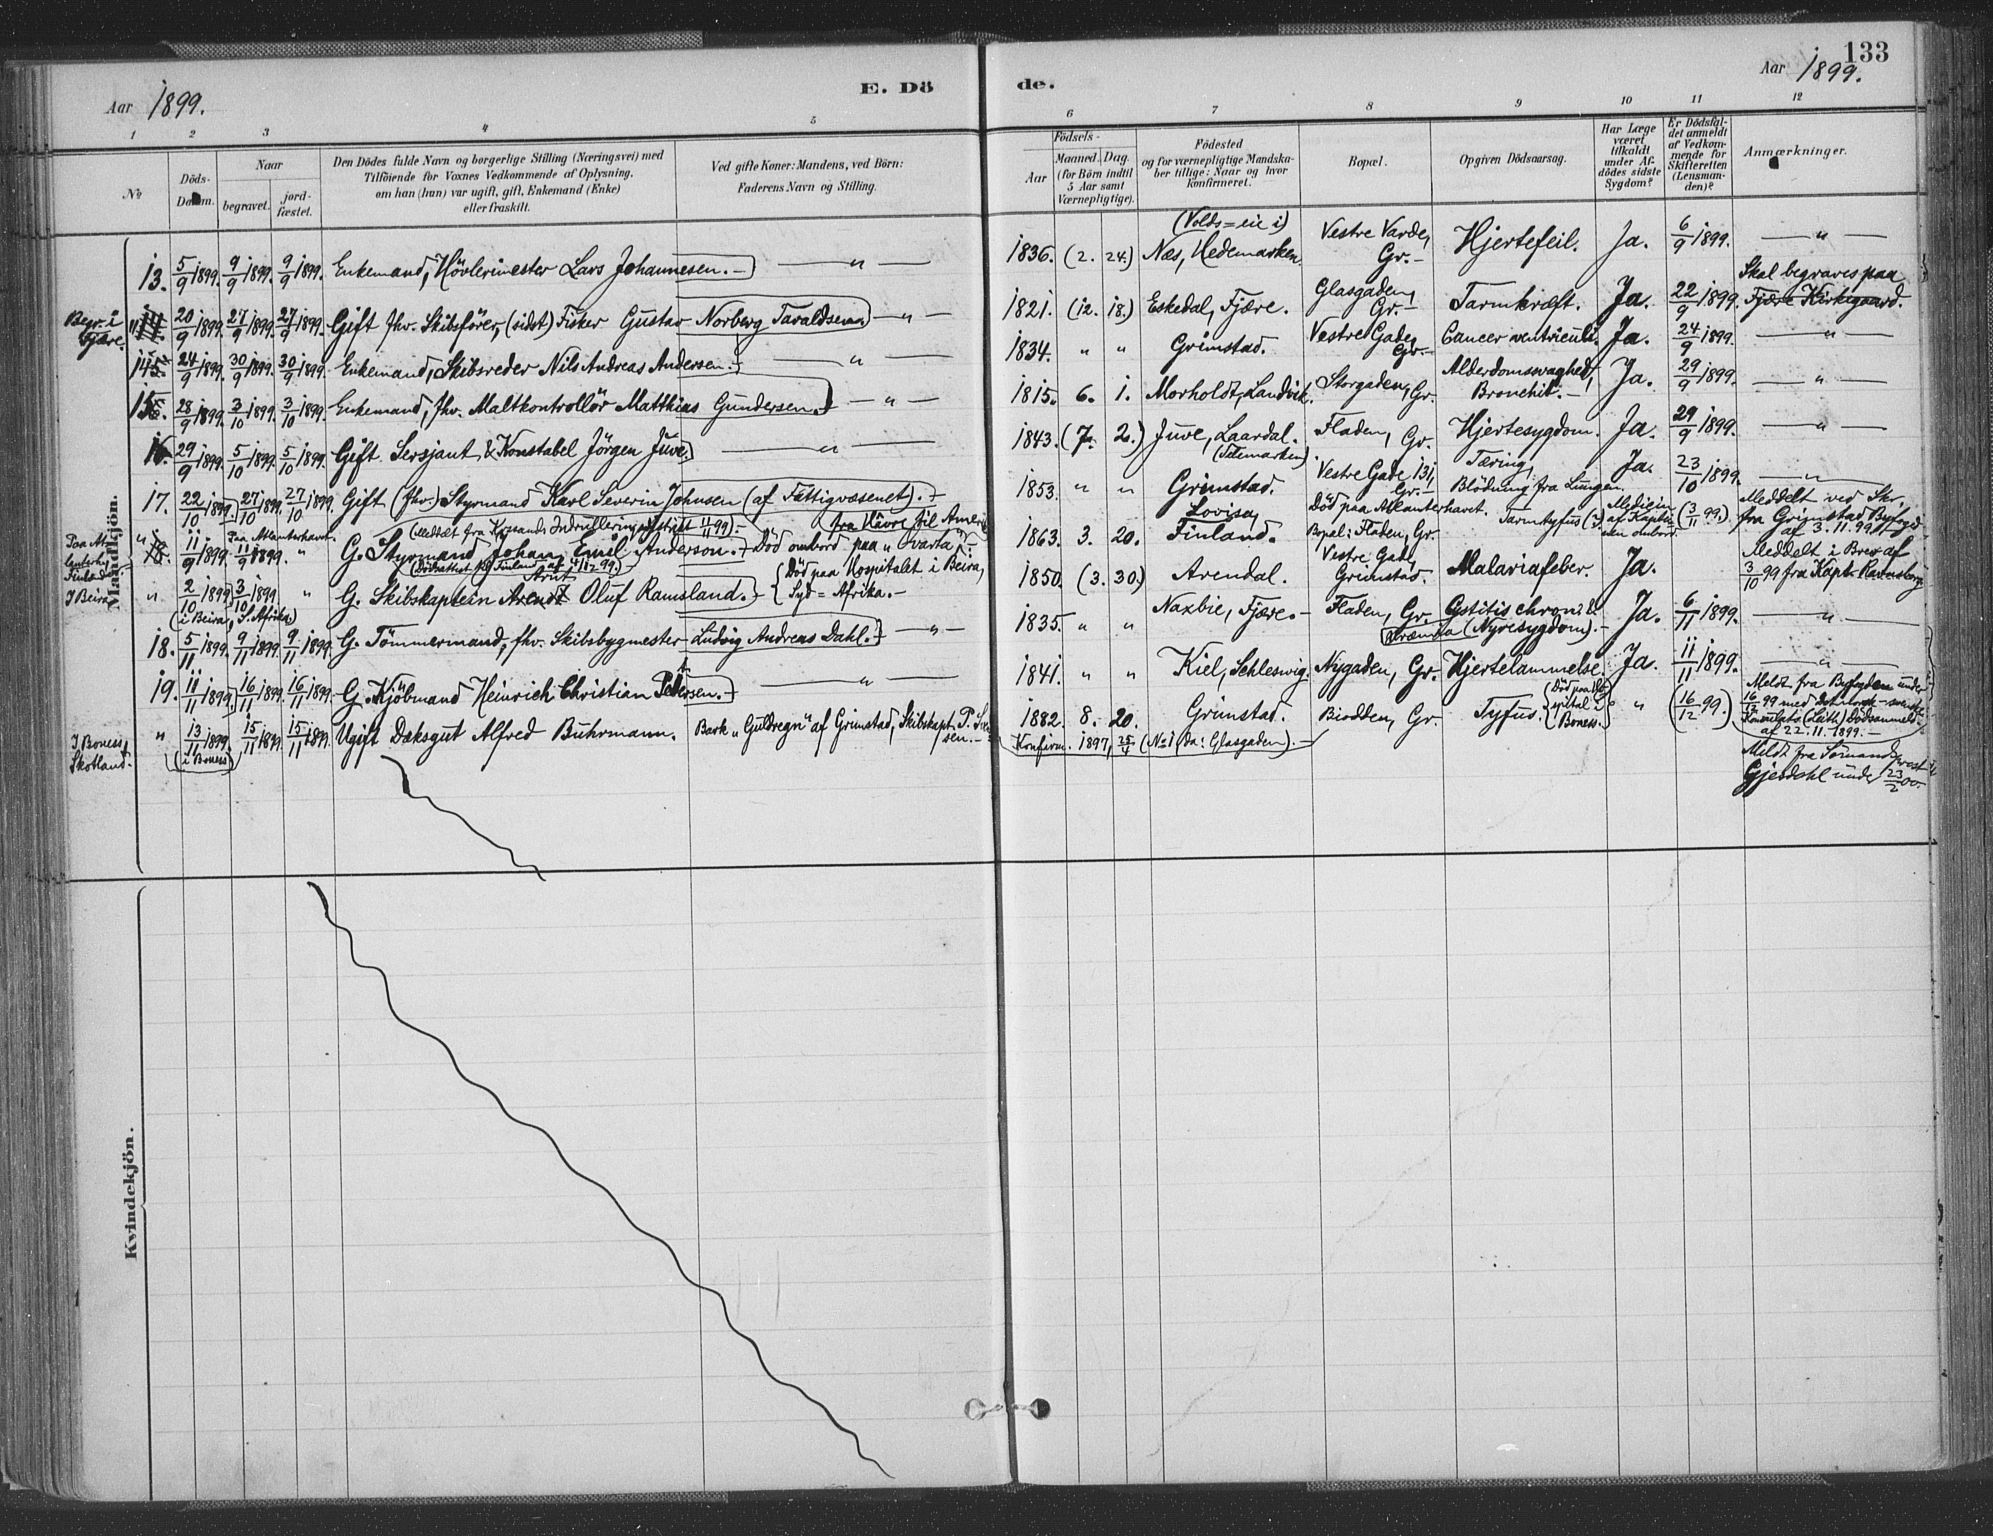 133
Aar 1899.
E. Dö
de.
Aar 1899.
1 2 3 4 5 6 7 8 9 10 11 12
No
Döds-Datum.
Naar
begravet.
jord-fæstet.
Den Dödes fulde Navn og borgerlige Stilling (Næringsvei) med
Tilföiende for Voxnes Vedkommende af Oplysning,
om han (hun) var ugift, gift, Enkemand (Enke)
eller fraskilt.
Ved gifte Koner: Mandens, ved Börn:
Faderens Navn og Stilling.
Födsels-
Aar
Maaned. Dag.
(for Börn indtil
5 Aar samt
Værnepligtige).
Födested
og for værnepligtige Mandska-
ber tillige: Naar og hvor
konfirmeret.
Bopæl.
Opgiven Dödsaarsag.
Har Læge
været
tilkaldt
under Af-
dödes sidste
Sygdom?
Er Dödsfal-
det anmeldt
af Vedkom-
mende for
Skifteretten
(Lensman-
den)?
Anmærkninger.
Mandkjön.
13. 5/9 1899. 9/9 1899. 9/9 1899. Enkemand, Hövlerimester Lars Johannesen. — " — 1836. (2. 24.) (Volds=eie i) Næs, Hedemarken. Vestre Varde, Gr. — Hjertefeil. Ja. 6/9 1899. — " —
Begr. i Fjære. " 20/9 1899. 27/9 1899. 27/9 1899. Gift fhv. Skibsförer, (sidst) Fisker Gustav Norberg Taraldsen. — " — 1821. (12. 18.) Eskedal, Fjære. Glasgaden, Gr. — Tarmkræft. Ja. 22/9 1899. Skal begraves paa Fjære Kirkegaard.
14. 24/9 1899. 30/9 1899. 30/9 1899. Enkemand, Skibsreder Nils Andreas Andersen. — " — 1834. " " Grimstad. Vestre Gade, Gr. — Cancer ventriculi. Ja. 24/9 1899. — " —
15. 28/9 1899. 3/10 1899. 3/10 1899. Enkemand, fhv. Maltkontrollör Matthias Gundersen. — " — 1815. 6. 1. Morholdt, Landvik. Storgaden, Gr. Alderdomssvaghed, Bronchit. — Ja. 29/9 1899. — " —
16. 29/9 1899. 5/10 1899. 5/10 1899. Gift Sersjant & Konstabel Jörgen Juve. — " — 1843. (7. 2.) Juve, Laardal. (Telemarken) Fladen, Gr. Hjertesygdom. Ja. 29/9 1899. — " —
17. 22/10 1899. 27/10 1899. 27/10 1899. Gift (fhv.) Styrmand Karl Severin Johnsen (af Fattigvæsenet). — 1853. " " Grimstad. Vestre Gade 131, Gr. — Tæring, Blödning fra Lungen. Ja. 23/10 1899. — " —
Paa Atlanterh. " 11/9 1899. Paa Atlanterhavet. 11/9 1899. " (Meddelt fra Krssands Indrulleringsdistrikt 11/11 99). — G. Styrmand Johan Emil Anderson. — Död ombord paa "Varta" fra Havre til Amerik 1863. 3. 20. Lovisa, Finland. Död paa Atlanterhavet. Bopæl: Fladen, Gr. Tarmtyfus (?) Medicin af Kapteinen ombord. (3/11 99.) Meddelt ved Skr. fra Grimstad Byfogd af 3.11.99.
I Beira. " 2/10 1899. (i Beira, S. Afrika) 3/10 1899. " G. Skibskaptein Arnt Oluf Ramsland. — Död paa Hospitalet i Beira, Syd=Afrika. — 1850. (3. 30.) Arendal. Vestre Gade, Grimstad. Malariafeber. Ja. Meddelt i Brev af 3/10 99 fra Kapt. Ravensberg.
18. 5/11 1899. 9/11 1899. 9/11 1899. G. Tömmermand, fhv. Skibsbygmester Ludvig Andreas Dahl. — " — 1835. " " Naxbie, Fjære. — Fladen, Gr. Cystitis chron. & Uræmia (Nyresygdom). — Ja. 6/11 1899. — " —
19. 11/11 1899. 16/11 1899. 16/11 1899. G. Kjöbmand Heinrich Christian Petersen. — " — 1841. " " Kiel, Schleswig. Nygaden, Gr. Hjertelammelse. Ja. 11/11 1899. — " —
I Boness, Skotland. " 13/11 1899. (i Boness) 15/11 1899. 15/11 1899. Ugift Dæksgut Alfred Buhrmann. Bark "Guldregn" af Grimstad, Skibskapt. P. 1882. 8. 20. Grimstad. Biodden, Gr. Tyfus. (Död paa Hospital i Boness.) " (16/12 99.) Meldt fra Byfogden under 16/12 99 med Det norsk-svenske Konsulats (Leith) Dödsanmeld. af 22.11.1899. —
Konfirm. 1897, 25/4 (No 1 Ba: Glasgaden). —
Meldt fra Sömandsprest
Gjerdahl under 23/2 00.
Kvindekjön.